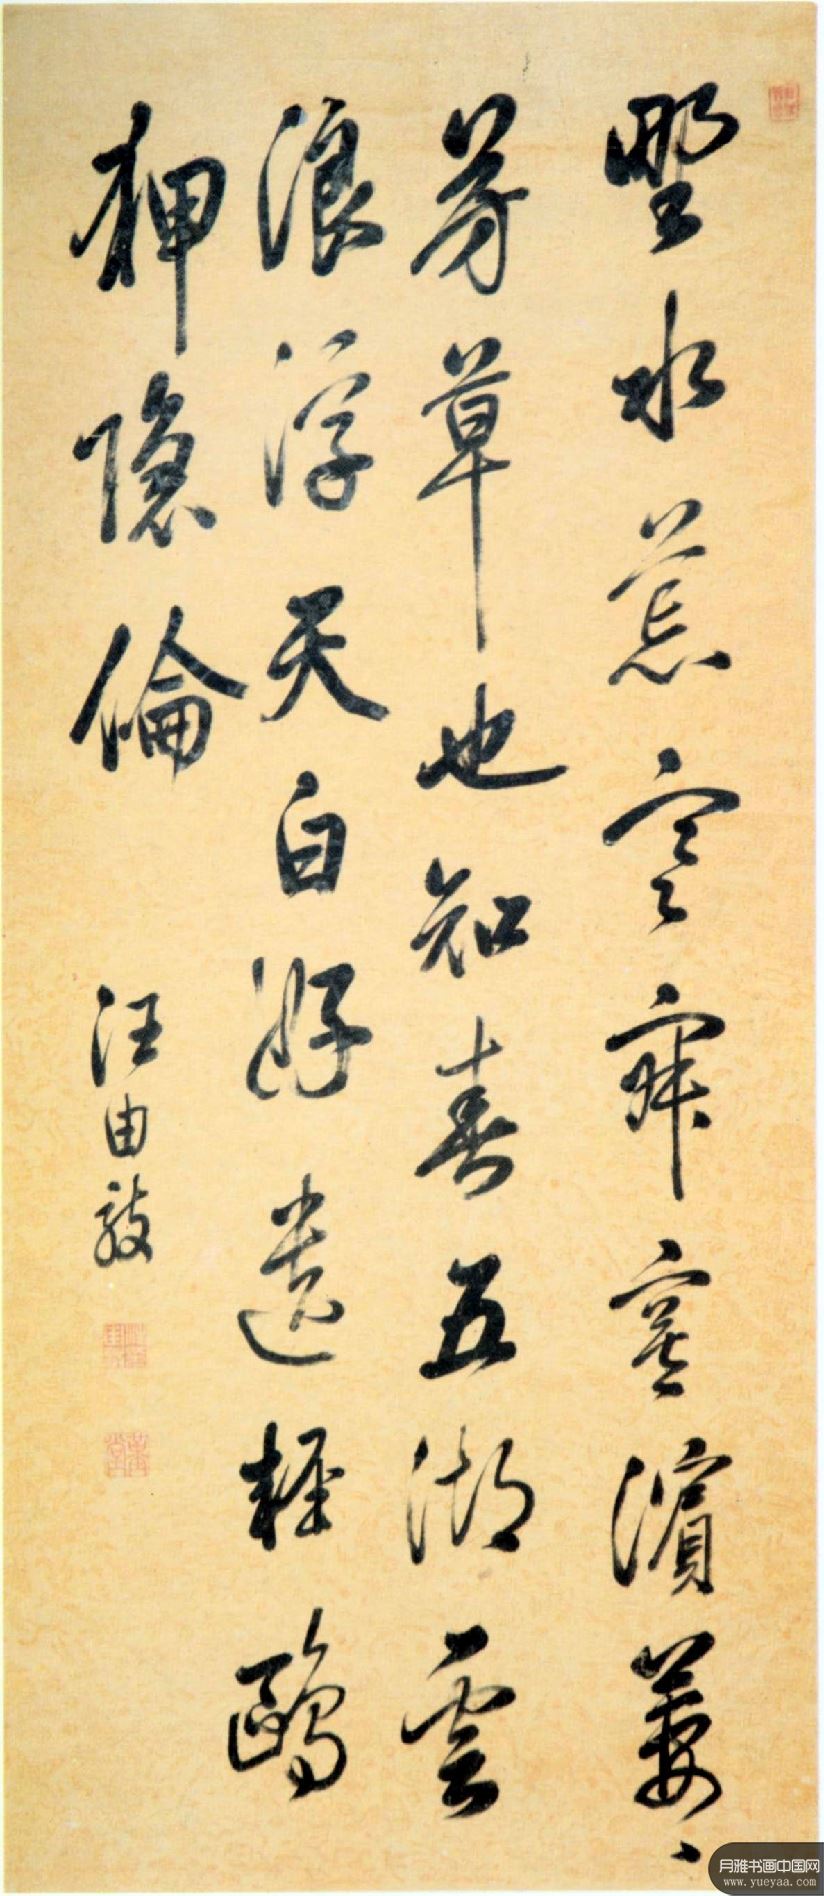 野水荒寒寂寞濱萋々
芳草也知春五湖雲
浪浮天白好遣輕鷗
狎隱倫
汪由敦
月雅书画中国网
www.yueyaa.com